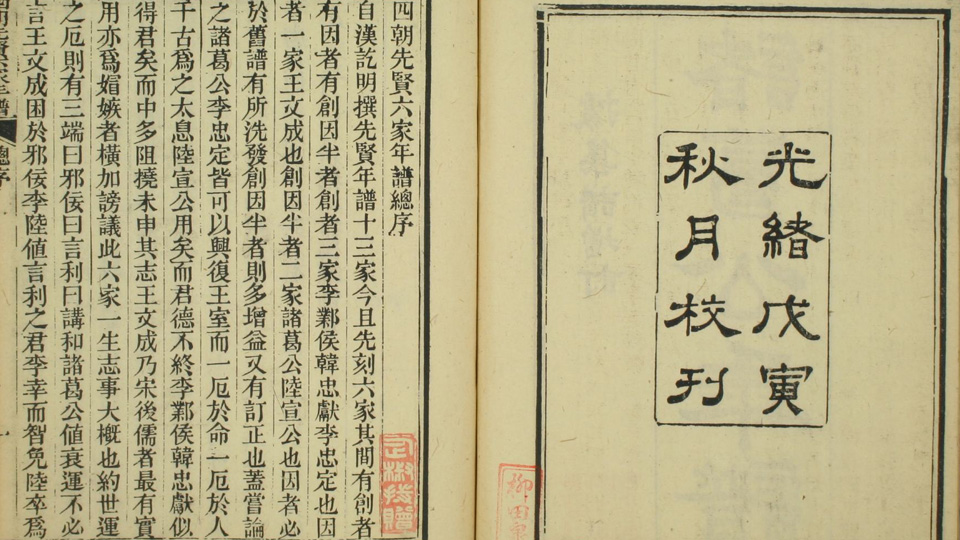 光緖戊寅
秋月校刊
四朝先賢六家年譜總序
自漢訖明撰先賢年譜十三家今且先刻六家其間有創者
有因者有創因半者創者三家李鄴侯韓忠獻李忠定也因
者一家王文成也創因半者二家諸葛公陸宣公也因者必
於舊譜有所洗發創因半者則多增益又有訂正也蓋嘗論
之諸葛公李忠定皆可以興復王室而一厄於命一厄於人
千古爲之太息陸宣公用矣而君德不終李鄴侯韓忠獻似
得君矣而中多阻撓未申其志王文成乃宋後儒者最有實
用亦爲媢嫉者橫加謗議此六家一生志事大槪也約世運
之厄則有三端曰邪佞曰言利曰講和諸葛公値衰運不必
言王文成困於邪佞李陸値言利之君李幸而智免陸卒爲
總序
一
柳田泉